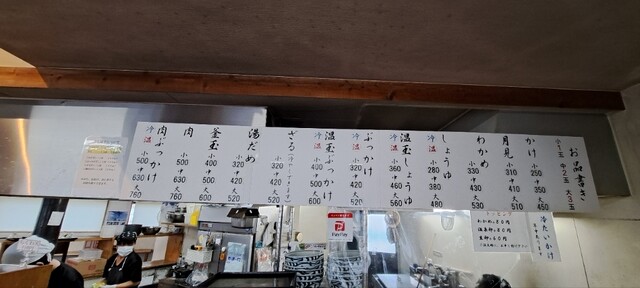 お品書き
小1玉 中2玉 大3玉
かけ
小 250
中 350
大 450
月見
小 310
中 410
大 510
わかめ
小 330
中 430
大 530
しょうゆ
冷 温
小 280
中 380
大 480
温玉しょうゆ
冷 温
小 360
中 460
大 560
ぶっかけ
冷 温
小 320
中 420
大 520
温玉ぶっかけ
冷 温
小 400
中 500
大 600
ざる
小 320
中 420
大 520
湯だめ
小 320
中 420
大 520
釜玉
小 400
中 500
大 600
肉
小 500
中 630
大 760
肉ぶっかけ
冷 温
小 500
中 630
大 760
トッピング
わかめ…80円
温玉卵…80円
生卵…60円
冷たいかけ
PayPay